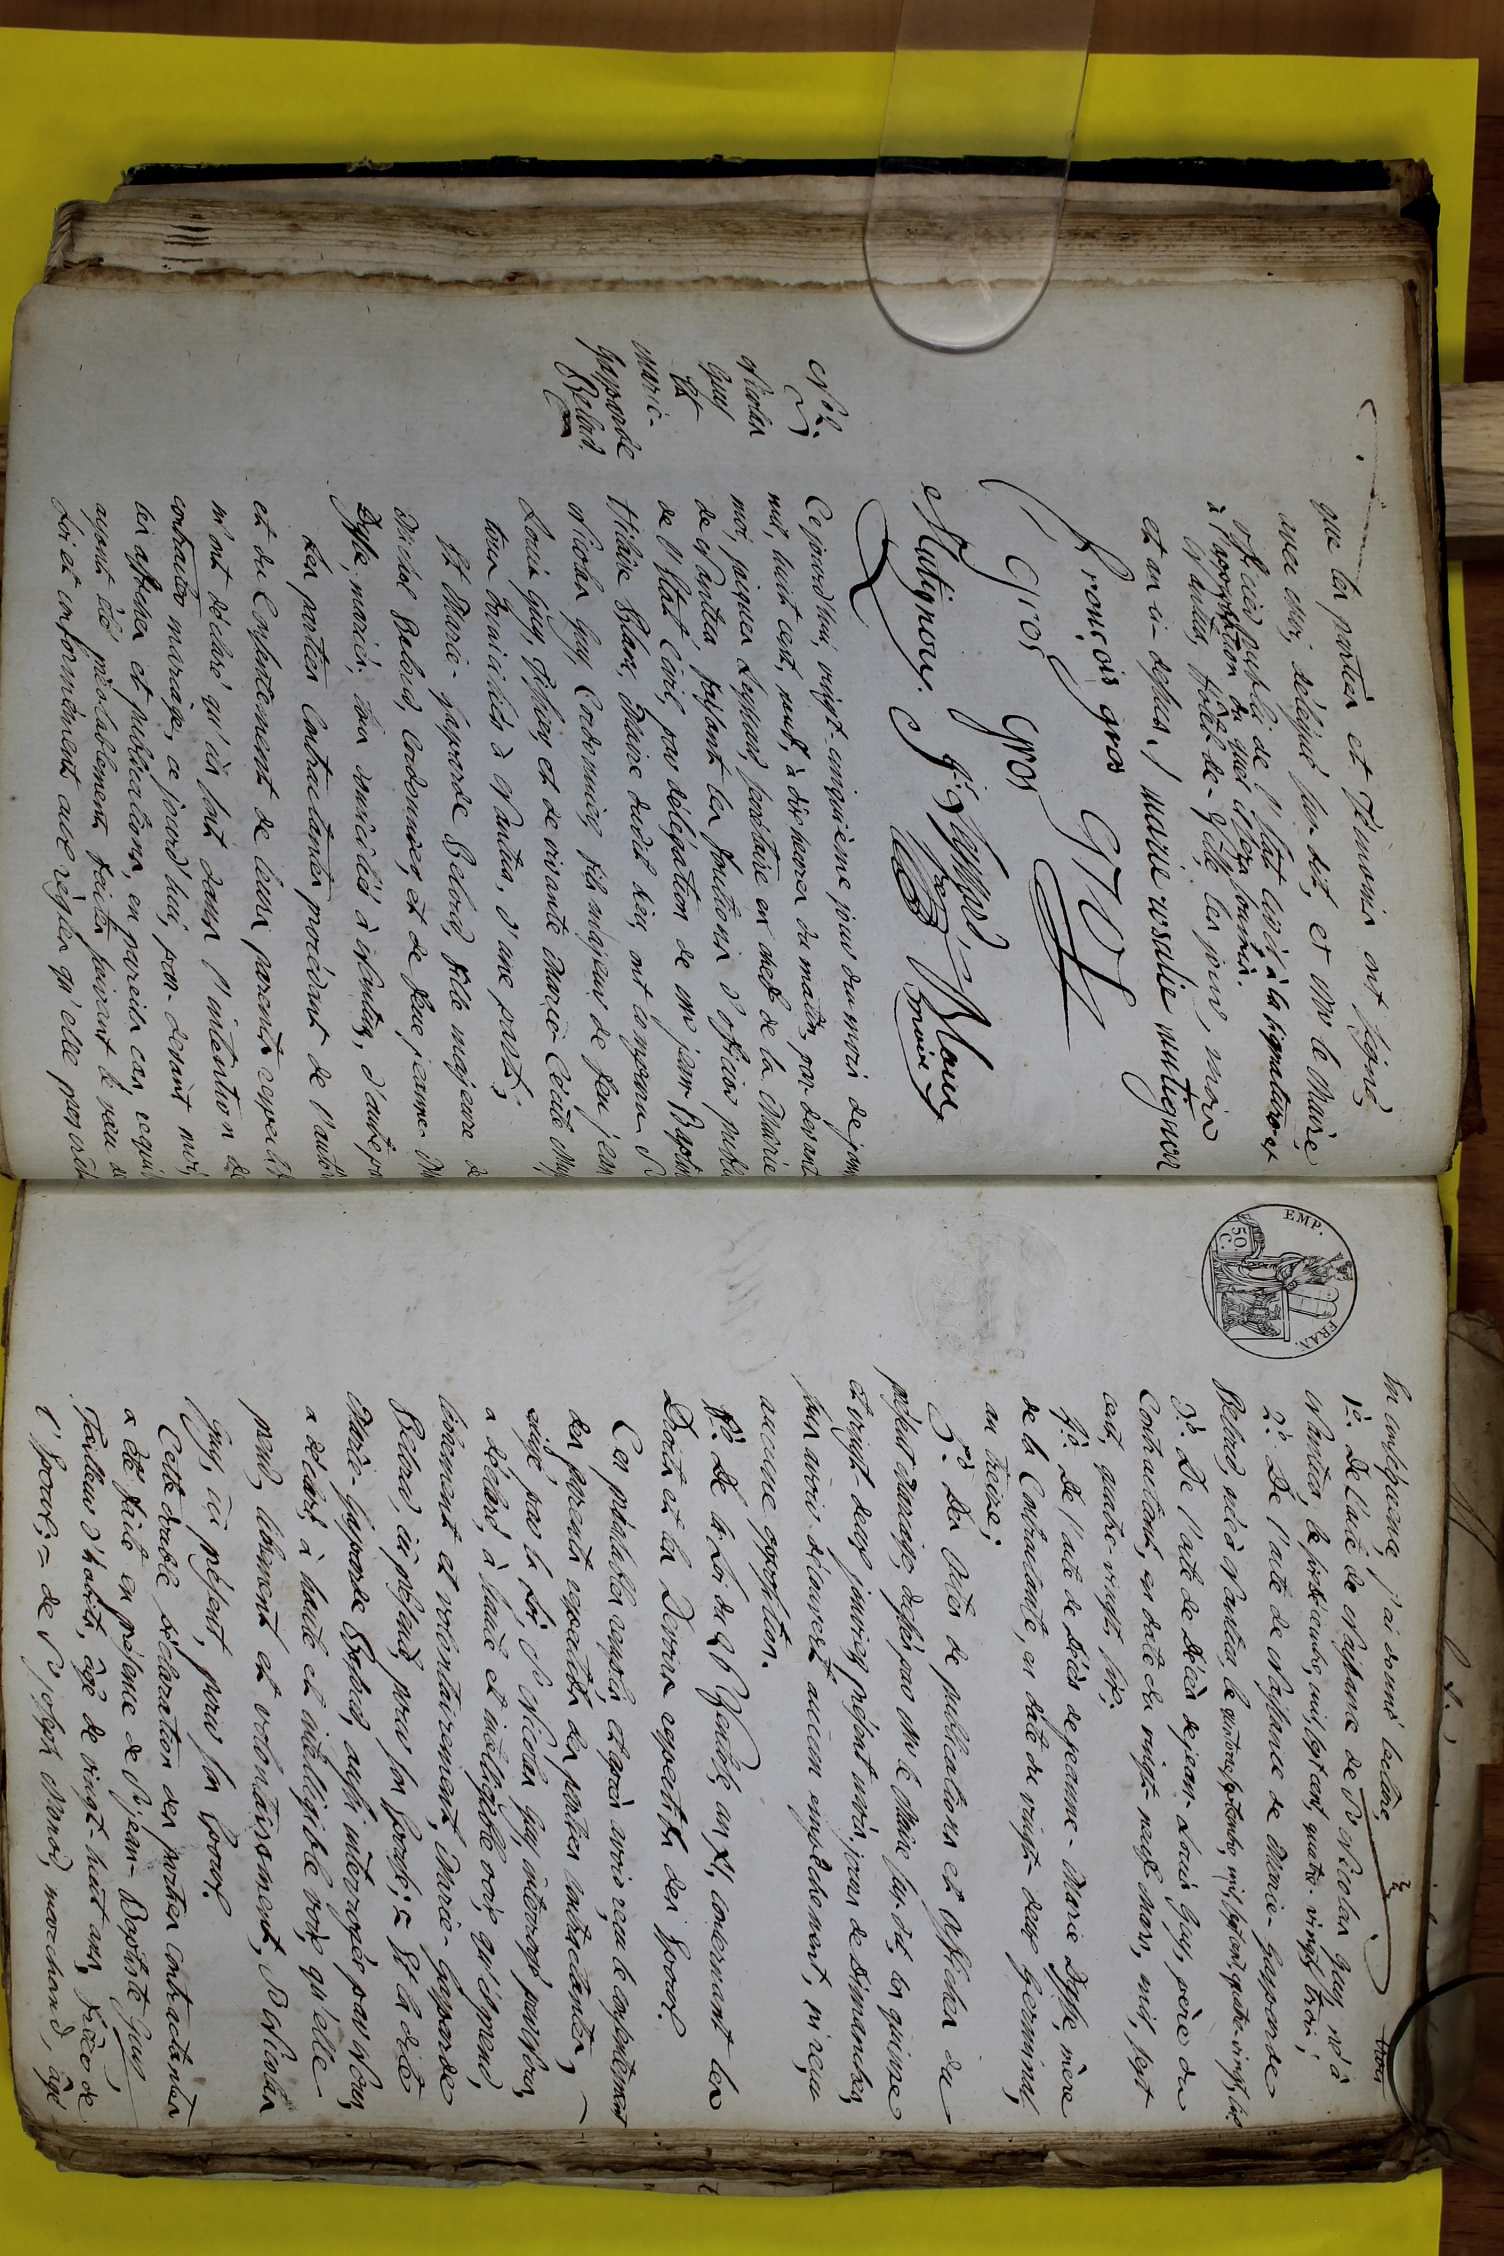 que les parties et Témoins ont signé,
avec moi, délégué sus-dit, et Mr le Maire,
officier public de l'État civil, à la signature et
à l'approbation du quel sera soumis.
à Nantua, hôtel-de-Ville, les jour, mois
et an ci-dessus. / marie rosalie mutignon
françois gros GTV
Gros Gros
Mutignon. J. Leyssard, Blanc
maire
N.° 2.
Nicolas
Guy
Et
Marie-
Gasparde
Belord.
Cejourd'hui, vingt-cinquième jour du mois de janv
mil, huit cent, neuf, à dix heures du matin, par-devant
moi, jacques Leyssard, secrétaire en chef de la Mairie
de Nantua, faisant les fonctions d'officier public
de l'État civil, par délégation de Mr jean Baptiste
Hilaire Blanc, Maire dudit lieu, ont comparu Sr
Nicolas Guy, Cordonnier, fils majeur de feu jean
Louis Guy, et de vivante Marie Cécile
tous domiciliés à Nantua, d'une part;
Et Marie-Gasparde Belord, fille majeure de
Michel Belord, Cordonnier, et de feue jeanne-M
mariés; tous domiciliés à Nantua, d'autre pa
Les parties Contractantes procédant de l'autor
et du Consentement de leurs parents respectifs
m'ont déclaré qu'ils sont dans l'intention de
contracter mariage, ce jourd'hui, par-devant moi,
les affiches et publications, en pareils cas, requi
ayant été préalablement faites suivant le vœu de
Loi et conformément aux règles qu'elle prescrit
3
trois
EMP. FRAN.
50 C.
En conséquence, j'ai donné lecture,
1.° De l'acte de Naissance de Sr Nicolas Guy, né à
Nantua, le six mil sept cent, quatre-vingt, trois;
2.° De l'acte de Naissance de Marie-Gasparde
Belord, née à Nantua, le quatorze septembre, mil sept cent, quatre-vingt, six
3.° De l'acte de Décès de jean-Louis Guy, père du
Contractant, en date du vingt-neuf Mars, mil, sept
cent, quatre-vingt, sept;
4.° De l'acte de Décès de jeanne-Marie mère
de la Contractante, en date du vingt-deux Germinal,
an treize;
5.° Des Actes de publications et affiches du
présent mariage, dressés par Mr le Maire sus-dit, les quinze
et vingt-deux janvier, présent mois, jours de dimanches,
sans avoir découvert aucun empêchement, ni reçu
aucune opposition.
6.° De la Loi du 26 Ventôse, an XI, concernant les
Droits et les Devoirs respectifs des Epoux.
Ces préalables remplis, et après avoir reçu le consentement
des parents respectifs des parties contractantes,
exigé par la Loi, Sr Nicolas Guy, interrogé par Nous,
a déclaré, à haute et intelligible voix, qu'il prend,
librement et volontairement, Marie-Gasparde
Belord, ici présente, pour son Epouse; = Et la dite
Marie-Gasparde Belord, aussi interrogée par Nous,
a déclaré, à haute et intelligible voix, qu'elle
prend, librement et volontairement, Sr Nicolas
Guy, ici présent, pour son Epoux.
Cette double déclaration des parties Contractantes
a été faite en présence de Sr jean-Baptiste Guy,
Tailleur d'habits, âgé de vingt-huit ans, frère de
l'Epoux; = de Sr joseph marchand, âgé